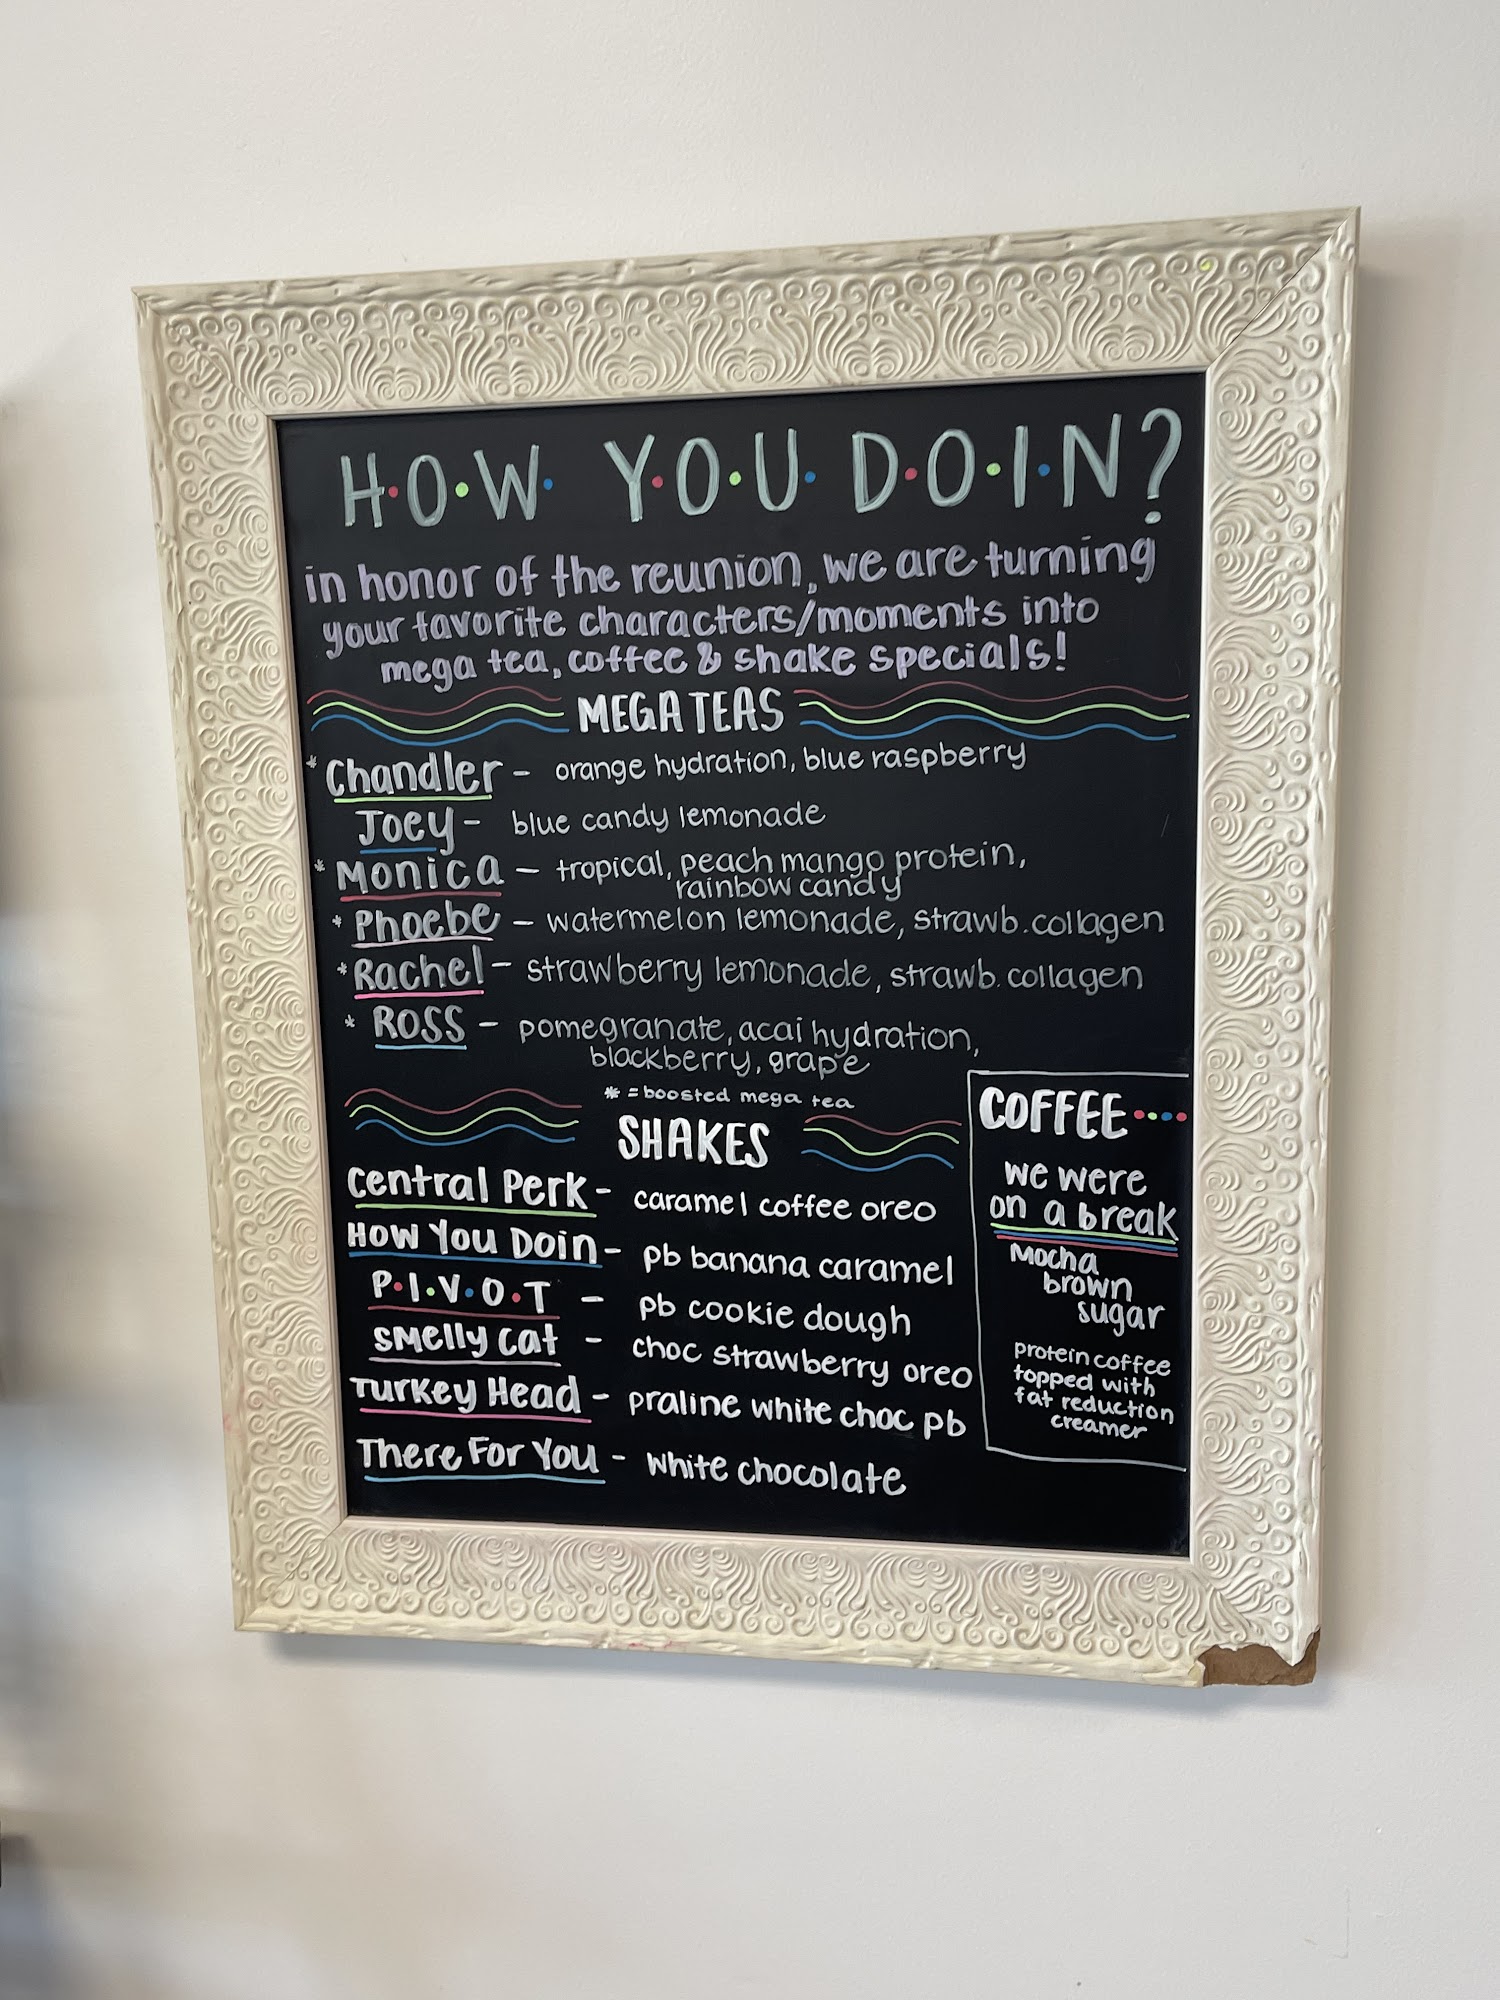 H·O·W· Y·O·U· D·O·I·N?
in honor of the reunion, we are turning
your favorite characters/moments into
mega tea, coffee & shake specials!
MEGA TEAS
* Chandler - orange hydration, blue raspberry
Joey - blue candy lemonade
* Monica - tropical, peach mango protein,
rainbow candy
* Phoebe - watermelon lemonade, strawb. collagen
* Rachel - strawberry lemonade, strawb. collagen
* ROSS - pomegranate, acai hydration,
blackberry, grape
* = boosted mega tea
SHAKES
Central Perk - caramel coffee oreo
How You Doin - pb banana caramel
P·I·V·O·T - pb cookie dough
Smelly Cat - choc strawberry oreo
Turkey Head - praline white choc pb
There For You - white chocolate
COFFEE····
we were
on a break
Mocha
brown
sugar
protein coffee
topped with
fat reduction
creamer